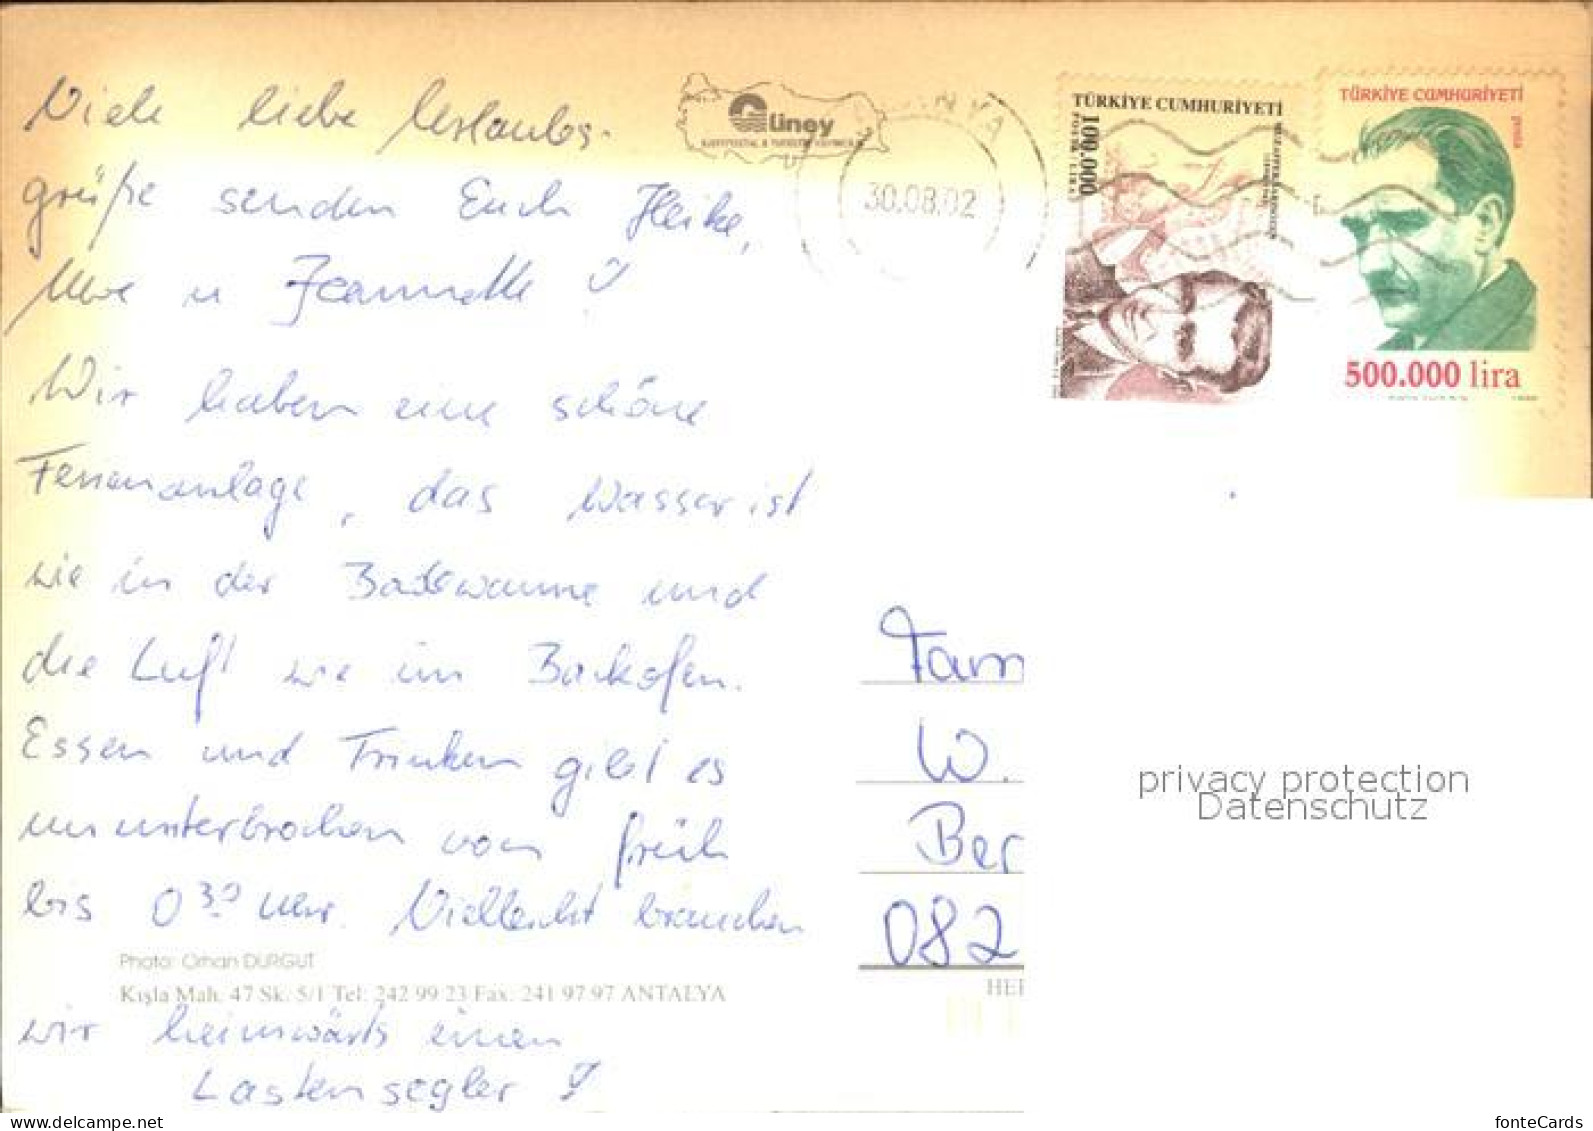 Viele liebe Urlaubs-
grüße senden Euch Heike,
Uwe u Jeannette !
Wir haben eine schöne
Ferienanlage, das Wasser ist
wie in der Badewanne und
die Luft wie im Backofen.
Essen und Trinken gibt es
ununterbrochen von früh
bis 0 30 Uhr. Vielleicht brauchen
wir heimwärts einen
Lastensegler !
Photo: Orhan DURGUT
Kışla Mah. 47 Sk. 5/1 Tel: 242 99 23 Fax: 241 97 97 ANTALYA
güney
30.08.02
TÜRKİYE CUMHURİYETİ
100.000
POSTA LİRA
TÜRKİYE CUMHURİYETİ
posta
500.000 lira
Fam
W.
Ber
082
HER
privacy protection
Datenschutz
https://www.delcampe.net
fonteCards